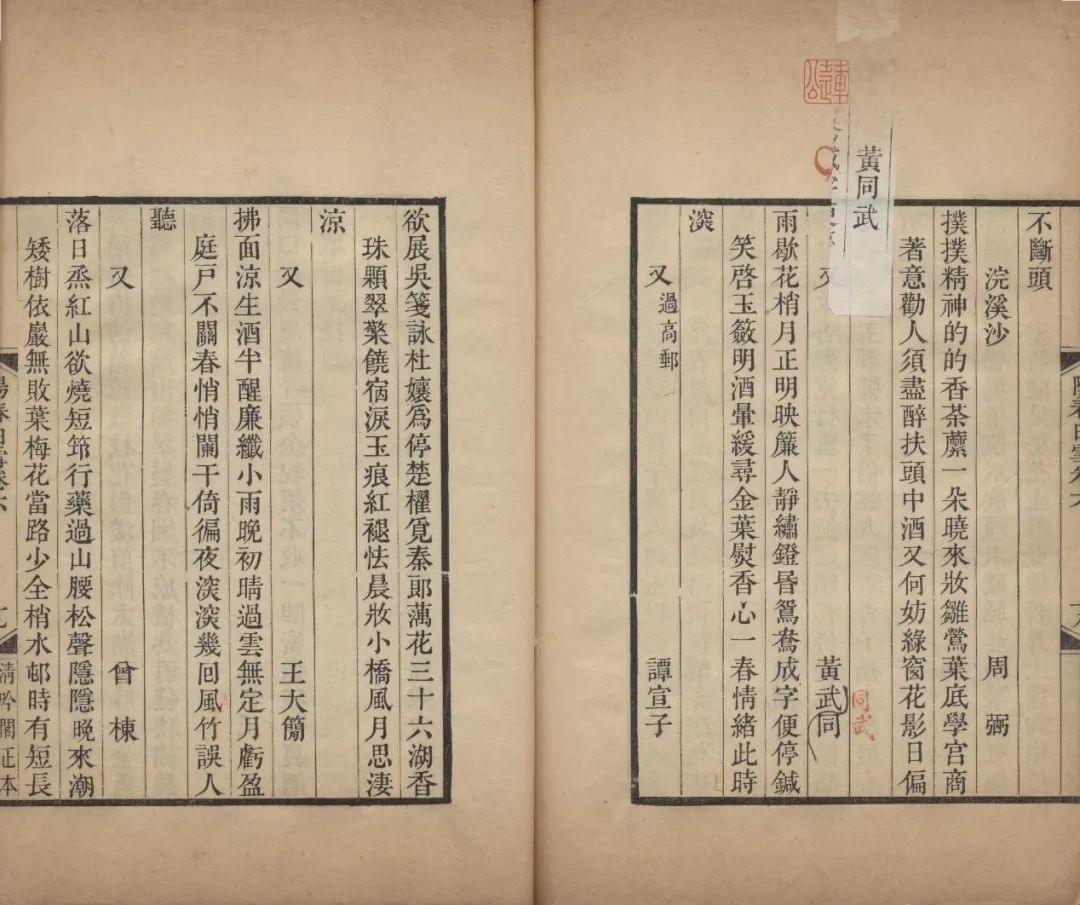 不斷頭
浣溪沙 周弼
撲撲精神的的香荼䕷一朵曉來妝雛鶯葉底學宮商
著意勸人須盡醉扶頭中酒又何妨綠窗花影日偏
黃同武
又 黃武同
同武
雨歇花梢月正明映簾人靜繡鐙昬鴛鴦成字便停鍼
笑啓玉籢明酒暈緩尋金葉熨香心一春情緒此時
深
又 過高郵 譚宣子
欲展吳箋詠杜孃爲停楚櫂覓秦郎藕花三十六湖香
珠顆翠檠饒宿淚玉痕紅褪怯晨妝小橋風月思淒
涼
又 王大簡
拂面涼生酒半醒廉纖小雨晚初晴過雲無定月虧盈
庭戸不關春悄悄闌干倚徧夜淡淡幾回風竹誤人
聽
又 曾棟
落日烝紅山欲燒短筇行藥過山腰松聲隱隱晚來潮
矮樹依巖無敗葉梅花當路少全梢水邨時有短長
清吟閣正本